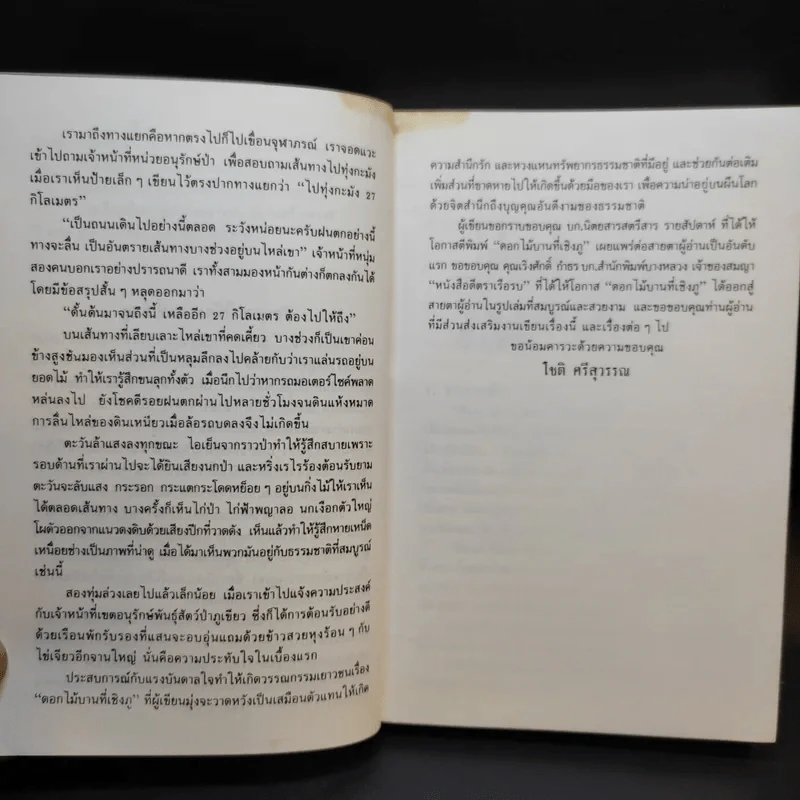 เรามาถึงทางแยกคือหากตรงไปก็ไปเขื่อนจุฬาภรณ์ เราจอดแวะ
เข้าไปถามเจ้าหน้าที่หน่วยอนุรักษ์ป่า เพื่อสอบถามเส้นทางไปทุ่งกะมัง
เมื่อเราเห็นป้ายเล็ก ๆ เขียนไว้ตรงปากทางแยกว่า “ไปทุ่งกะมัง 27
กิโลเมตร”
“เป็นถนนเดินไปอย่างนี้ตลอด ระวังหน่อยนะครับฝนตกอย่างนี้
ทางจะลื่น เป็นอันตรายเส้นทางบางช่วงอยู่บนไหล่เขา” เจ้าหน้าที่หนุ่ม
สองคนบอกเราอย่างปรารถนาดี เราทั้งสามมองหน้ากันต่างก็ตกลงกันได้
โดยมีข้อสรุปสั้น ๆ หลุดออกมาว่า
“ดั้นด้นมาจนถึงนี่ เหลืออีก 27 กิโลเมตร ต้องไปให้ถึง”
บนเส้นทางที่เลียบเลาะไหล่เขาที่คดเคี้ยว บางช่วงก็เป็นเขาค่อน
ข้างสูงชันมองเห็นส่วนที่เป็นหลุมลึกลงไปคล้ายกับว่าเราแล่นรถอยู่บน
ยอดไม้ ทำให้เรารู้สึกขนลุกทั้งตัว เมื่อนึกไปว่าหากรถมอเตอร์ไซค์พลาด
หล่นลงไป ยังโชคดีรอยฝนตกผ่านไปหลายชั่วโมงจนดินแห้งหมาด
การลื่นไหล่ของดินเหนียวเมื่อล้อรถบดลงจึงไม่เกิดขึ้น
ตะวันล้าแสงลงทุกขณะ ไอเย็นจากราวป่าทำให้รู้สึกสบายเพราะ
รอบด้านที่เราผ่านไปจะได้ยินเสียงนกป่า และหริ่งเรไรร้องต้อนรับยาม
ตะวันจะลับแสง กระรอก กระแตกระโดดหย็อย ๆ อยู่บนกิ่งไม้ให้เราเห็น
ได้ตลอดเส้นทาง บางครั้งก็เห็นไก่ป่า ไก่ฟ้าพญาลอ นกเงือกตัวใหญ่
โผตัวออกจากแนวดงดิบด้วยเสียงปีกที่วาดดัง เห็นแล้วทำให้รู้สึกหายเหน็ด
เหนื่อยช่างเป็นภาพที่น่าดู เมื่อได้มาเห็นพวกมันอยู่กับธรรมชาติที่สมบูรณ์
เช่นนี้
สองทุ่มล่วงเลยไปแล้วเล็กน้อย เมื่อเราเข้าไปแจ้งความประสงค์
กับเจ้าหน้าที่เขตอนุรักษ์พันธุ์สัตว์ป่าภูเขียว ซึ่งก็ได้การต้อนรับอย่างดี
ด้วยเรือนพักรับรองที่แสนจะอบอุ่นแถมด้วยข้าวสวยหุงร้อน ๆ กับ
ไข่เจียวอีกจานใหญ่ นั่นคือความประทับใจในเบื้องแรก
ประสบการณ์กับแรงบันดาลใจทำให้เกิดวรรณกรรมเยาวชนเรื่อง
“ดอกไม้บานที่เชิงภู” ที่ผู้เขียนมุ่งจะวาดหวังเป็นเสมือนตัวแทนให้เกิด
ความสำนึกรัก และหวงแหนทรัพยากรธรรมชาติที่มีอยู่ และช่วยกันต่อเติม
เพิ่มส่วนที่ขาดหายไปให้เกิดขึ้นด้วยมือของเรา เพื่อความน่าอยู่บนผืนโลก
ด้วยจิตสำนึกถึงบุญคุณอันดีงามของธรรมชาติ
ผู้เขียนขอกราบขอบคุณ บก.นิตยสารสตรีสาร รายสัปดาห์ ที่ได้ให้
โอกาสตีพิมพ์ “ดอกไม้บานที่เชิงภู” เผยแพร่ต่อสายตาผู้อ่านเป็นอันดับ
แรก ขอขอบคุณ คุณเริงศักดิ์ กำธร บก.สำนักพิมพ์บางหลวง เจ้าของสมญา
“หนังสือดีตราเรือรบ” ที่ได้ให้โอกาส “ดอกไม้บานที่เชิงภู” ได้ออกสู่
สายตาผู้อ่านในรูปเล่มที่สมบูรณ์และสวยงาม และขอขอบคุณท่านผู้อ่าน
ที่มีส่วนส่งเสริมงานเขียนเรื่องนี้ และเรื่องต่อ ๆ ไป
ขอน้อมคารวะด้วยความขอบคุณ
โชติ ศรีสุวรรณ